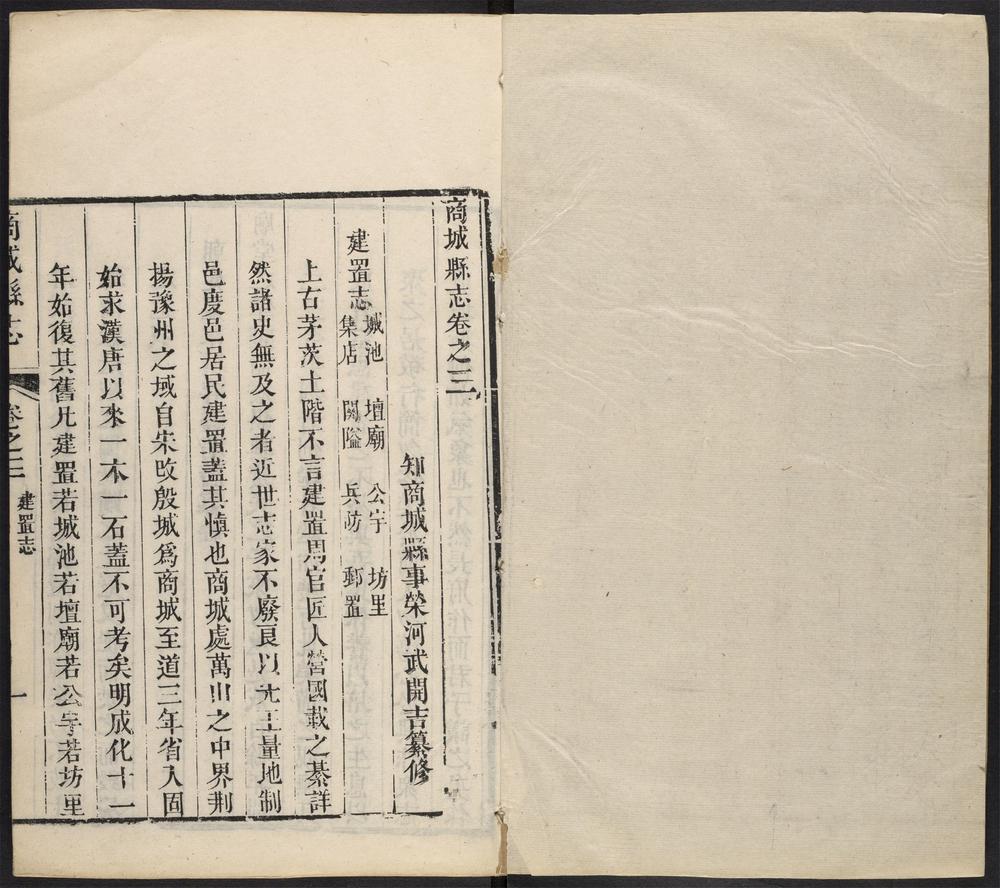 商城縣志卷之三
知商城縣事榮河武開吉纂修
建置志 城池 壇廟 公宇 坊里
集店 關隘 兵防 郵置
上古茅茨土階不言建置周官匠人營國載之綦詳
然諸史無及之者近世志家不廢良以先王量地制
邑度邑居民建置蓋其慎也商城處萬山之中界荆
揚豫州之域自宋改殷城爲商城至道三年省入固
始求漢唐以來一木一石蓋不可考矣明成化十一
年始復其舊凡建置若城池若壇廟若公宇若坊里
商城縣志 卷之三 建置志 一